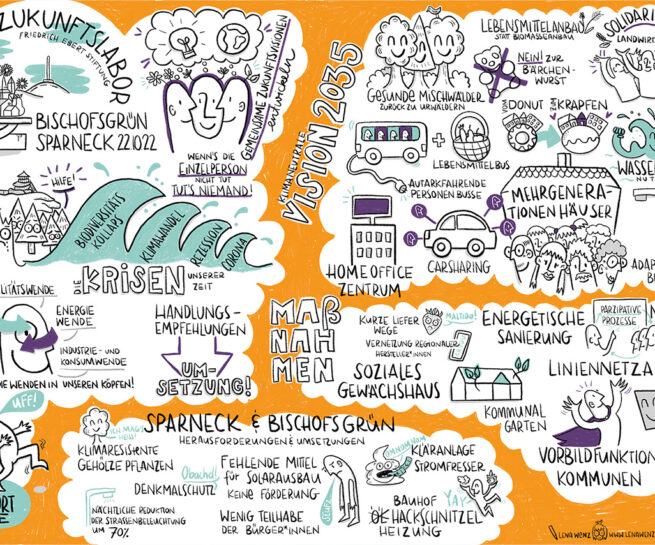 ZUKUNFTSLABOR
FRIEDRICH EBERT STIFTUNG
BISCHOFSGRÜN
SPARNECK 22|10|22
GEMEINSAME ZUKUNFTSVISIONEN
entwickeln
WENN'S DIE
EINZELPERSON
NICHT TUT
TUT'S NIEMAND!
HILFE!
BIODIVERSITÄTS
KOLLAPS
KLIMAWANDEL
REZESSION
CORONA
DIE KRISEN UNSERER
ZEIT
ENERGIE
WENDE
INDUSTRIE- UND
KONSUMWENDE
WENDEN IN UNSEREN KÖPFEN!
HANDLUNGS-
EMPFEHLUNGEN
UM-
SETZUNG!
KLIMANEUTRALE
VISION 2035
GESUNDE MISCHWÄLDER
ZURÜCK ZU URWÄLDERN
LEBENSMITTELANBAU
STATT BIOMASSEANBAU
NEIN! ZUR
BÄRCHEN-
WURST
LANDWIR
DONUT
KRAPFEN
WASSE
LEBENSMITTELBUS
AUTARKFAHRENDE
PERSONEN BUSSE
HOME OFFICE
ZENTRUM
CARSHARING
MEHRGENERA-
TIONEN HÄUSER
ADAP
MAß
NAH
MEN
KURZE LIEFER
WEGE
MALTIDO!
VERNETZUNG REGIONALER
HERSTELLER*INNEN
SOZIALES
GEWÄCHSHAUS
ENERGETISCHE
SANIERUNG
PARZIPATIVE
PROZESSE
LINIENNETZ
KOMMUNAL
GARTEN
VORBILDFUNKTION
KOMMUNEN
UFF!
SPARNECK & BISCHOFSGRÜN
HERAUSFORDERUNGEN & UMSETZUNGEN
ICH MAGS
HEIß!
KLIMARESISTENTE
GEHÖLZE PFLANZEN
Obacht!
DENKMALSCHUTZ
NÄCHTLICHE REDUKTION
DER STRASSENBELEUCHTUNG
UM 70%
FEHLENDE MITTEL
FÜR SOLARAUSBAU
KEINE FÖRDERUNG
WENIG TEILHABE
DER BÜRGER*INNEN
OMNOMNAM
KLÄRANLAGE
STROMFRESSER
BAUHOF
YAY
ÖL HACKSCHNITZEL
HEIZUNG
LENA WENZ